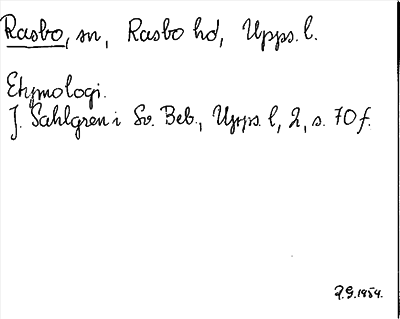 Rasbo, sn, Rasbo hd, Upps. l.
Etymologi.
J. Sahlgren i Sv. Beb., Upps. l, 2, s. 70 f.
P.G. 1954.